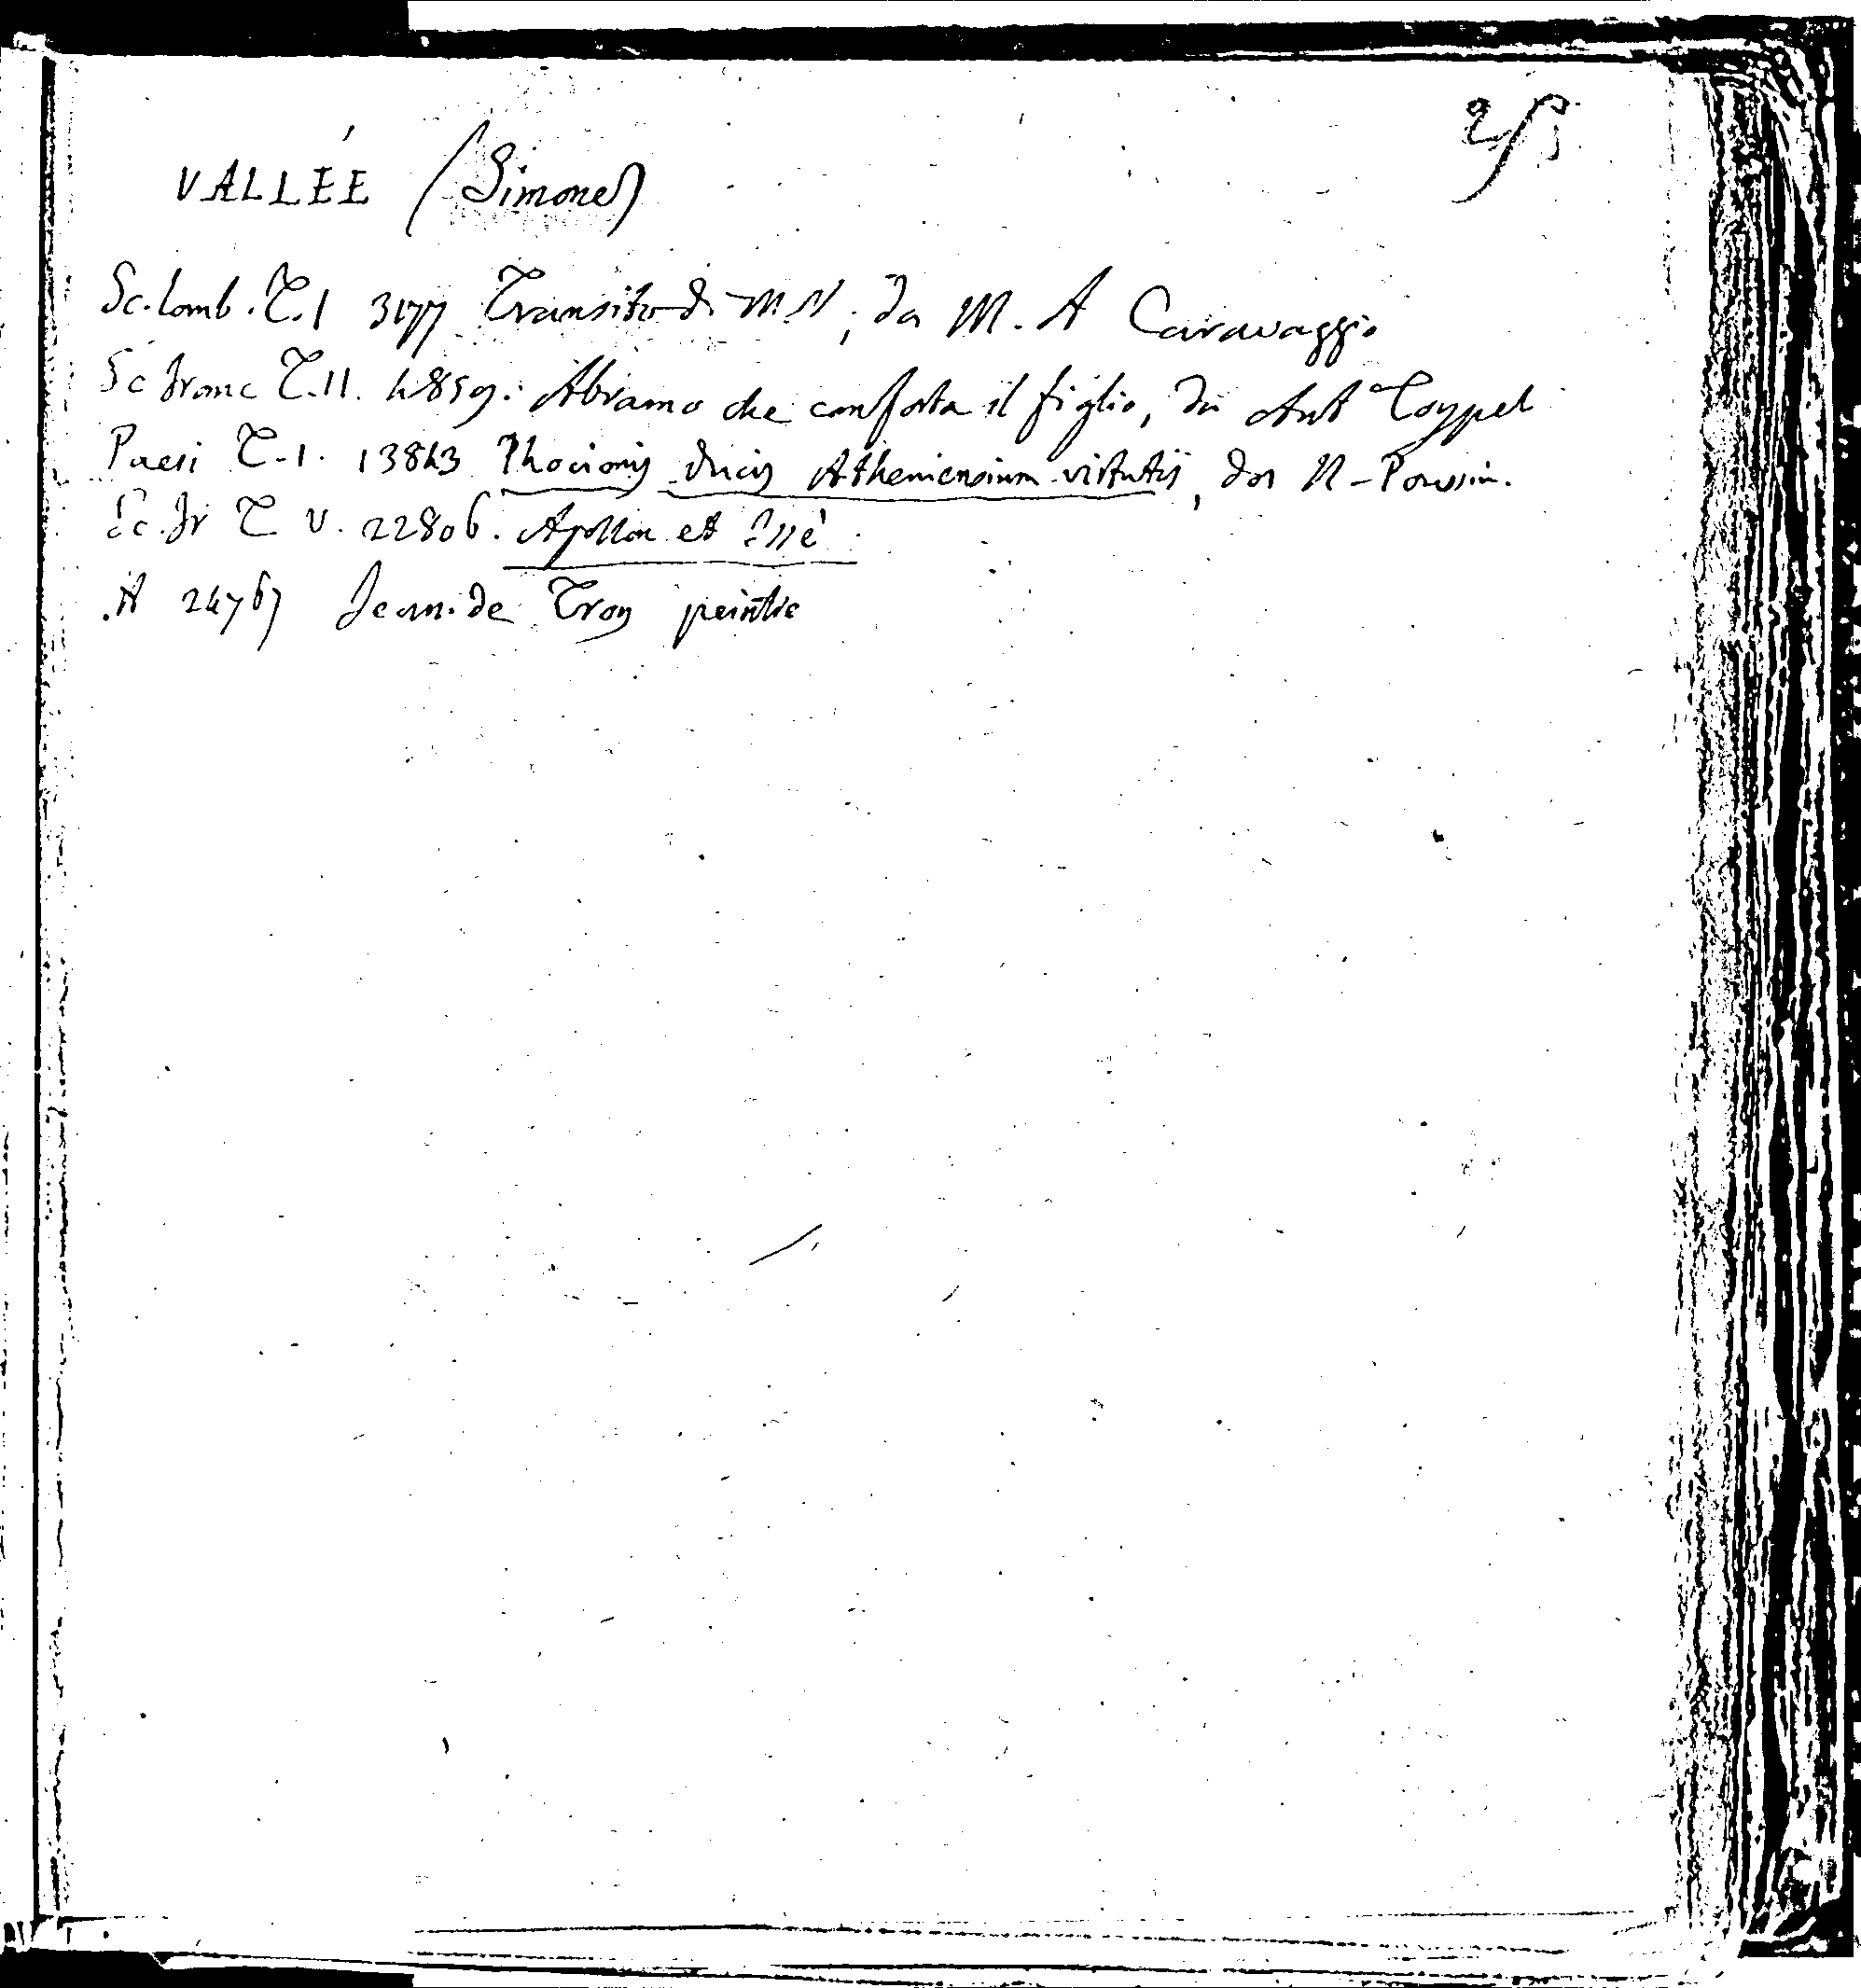 VALLÉE (Simone)
Sc. lomb. T. I 3177 Transito di M. V, da M. A Caravaggio
Sc franc T. II. 4859. Abramo che conforta il figlio, da Ant Coypel
Paesi T. I. 13843 Phocionis ducis Atheniensium virtutis, da N. Poussin.
Sc. fr T V. 22806. Apollon et Issé
A 24767 Jean de Troy peintre